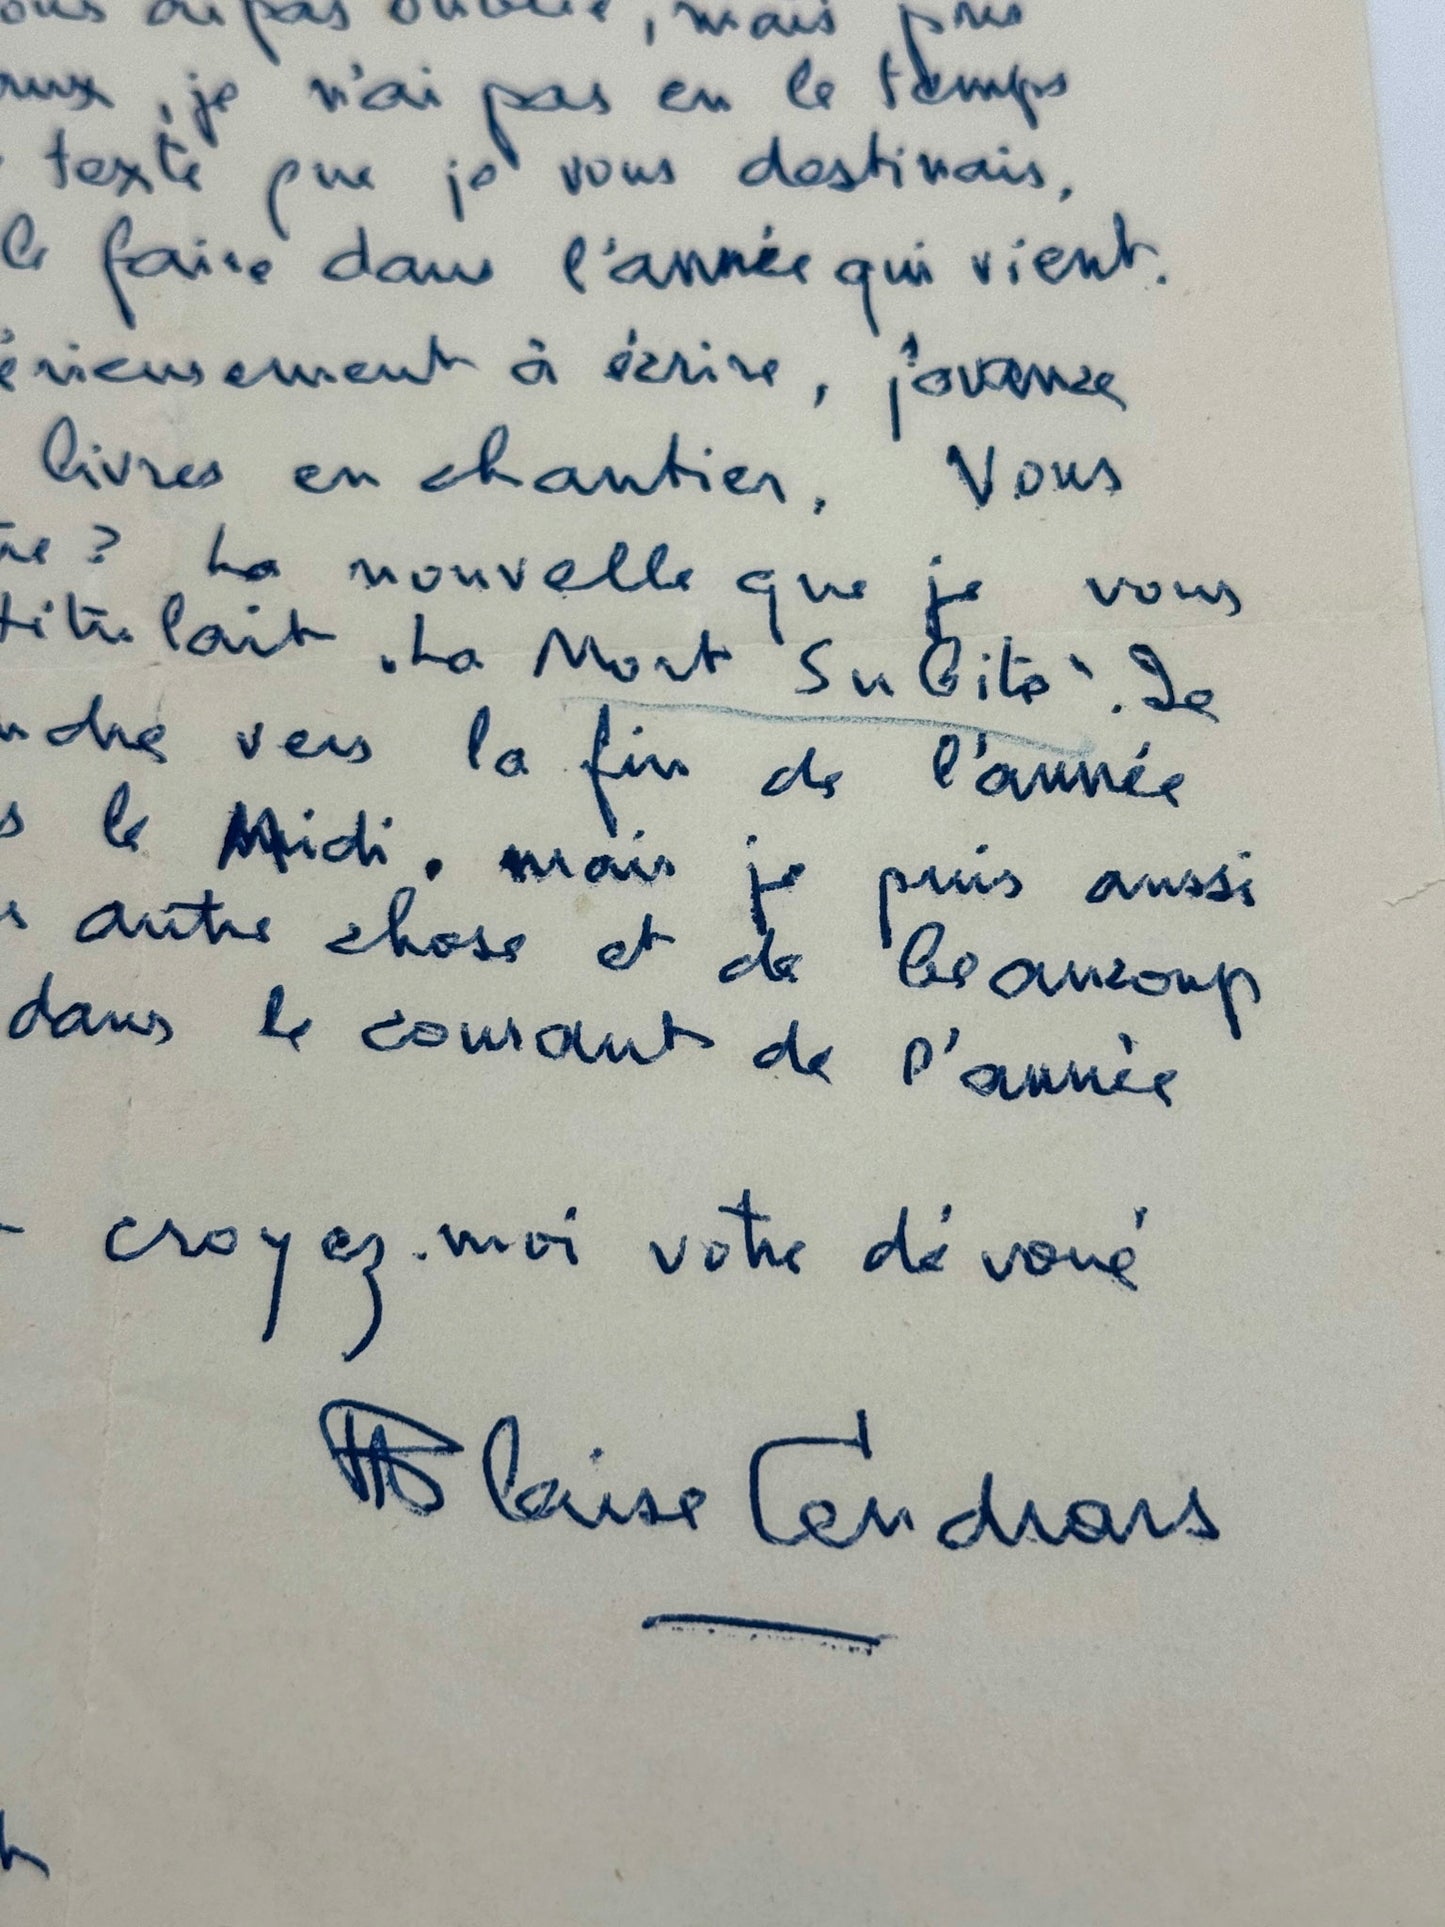 ous ai pas oublié, mais pris
aux, je n'ai pas eu le temps
texte que je vous destinais,
le faire dans l'année qui vient.
érieusement à écrire, j'avance
livres en chantier. Vous
tre? La nouvelle que je vous
titulait "La Mort Subite". Je
ndre vers la fin de l'année
s le Midi. mais je puis aussi
s autre chose et de beaucoup
dans le courant de l'année
croyez-moi votre dévoué
Blaise Cendrars